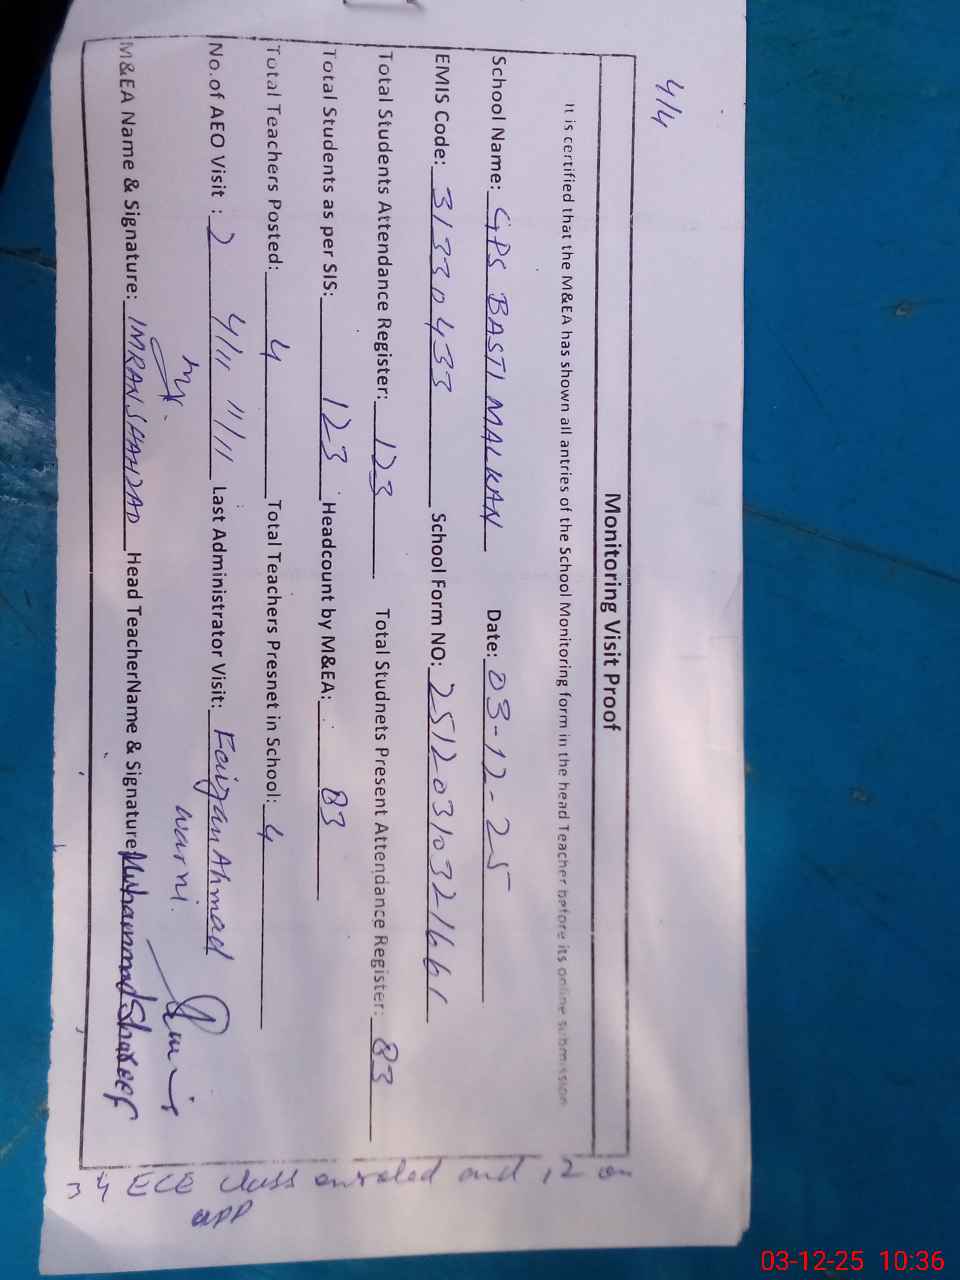 4/4
Monitoring Visit Proof
It is certified that the M&EA has shown all antries of the School Monitoring form in the head Teacher before its online submission
School Name: GPS BASTI MALKAN Date: 03-12-25
EMIS Code: 31330433 School Form NO: 25120310321661
Total Students Attendance Register: 123 Total Studnets Present Attendance Register: 83
Total Students as per SIS: 123 Headcount by M&EA: 83
Total Teachers Posted: 4 Total Teachers Presnet in School: 4
No.of AEO Visit : 2 4/11 11/11 Last Administrator Visit: Faizan Ahmad
M&EA Name & Signature: IMRAN SHAHZAD Head TeacherName & Signature: Muhammad Shareef
34 ECE class enroled and 12 on
app
03-12-25 10:36